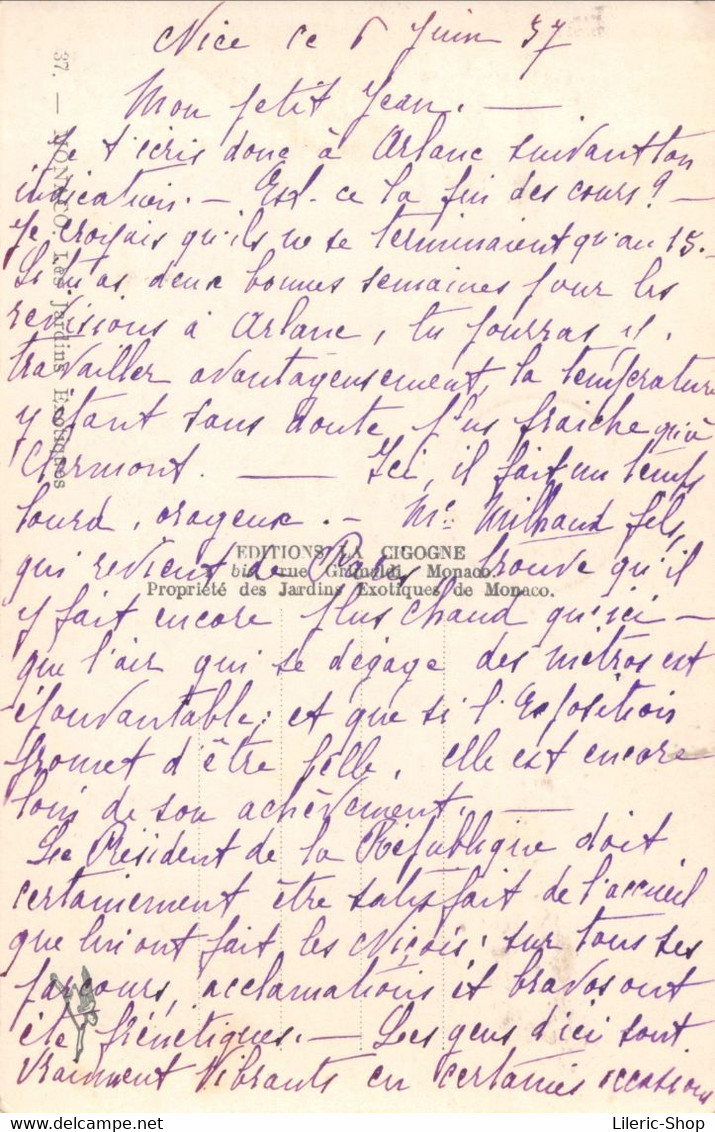 Nice ce 6 Juin 37
Mon petit Jean. —
Je t'écris donc à Arlanc suivant ton
indication. — Est-ce la fin des cours? —
Je croyais qu'ils ne se terminaient qu'au 15. —
Si tu as deux bonnes semaines pour les
revisions à Arlanc, tu pourras y
travailler avantageusement, la température
y étant sans doute plus fraiche qu'à
Clermont. — Ici, il fait un temps
lourd, orageux. — Mr Milhaud fils,
qui revient de Paris trouve qu'il
y fait encore plus chaud qu'ici —
que l'air qui se dégage des métros est
épouvantable; et que si l'Exposition
promet d'être belle, elle est encore
loin de son achèvement. —
Le Président de la République doit
certainement être satisfait de l'accueil
que lui ont fait les Niçois: sur tous ses
parcours, acclamations et bravos ont
été frénétiques. — Les gens d'ici sont
vraiment vibrants en certaines occasions
37. — MONACO. Les Jardins Exotiques
EDITIONS LA CIGOGNE
bis, rue Grimaldi, Monaco.
Propriété des Jardins Exotiques de Monaco.
Lileric-Shop